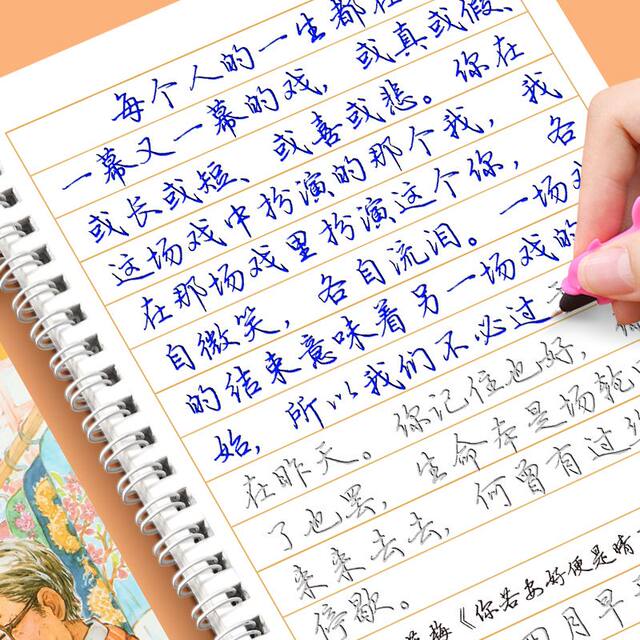 每个人的一生都在
一幕又一幕的戏，或真或假、
或长或短、或喜或悲。你在
这场戏中扮演的那个我，我
在那场戏里扮演这个你，各
自微笑，各自流泪。一场戏
的结束意味着另一场戏的
始，所以我们不必过
在昨天。你记住也好，
了也罢，生命本是场轮
来来去去，何曾有过
停歇。
梅《你若安好便是晴
四月早